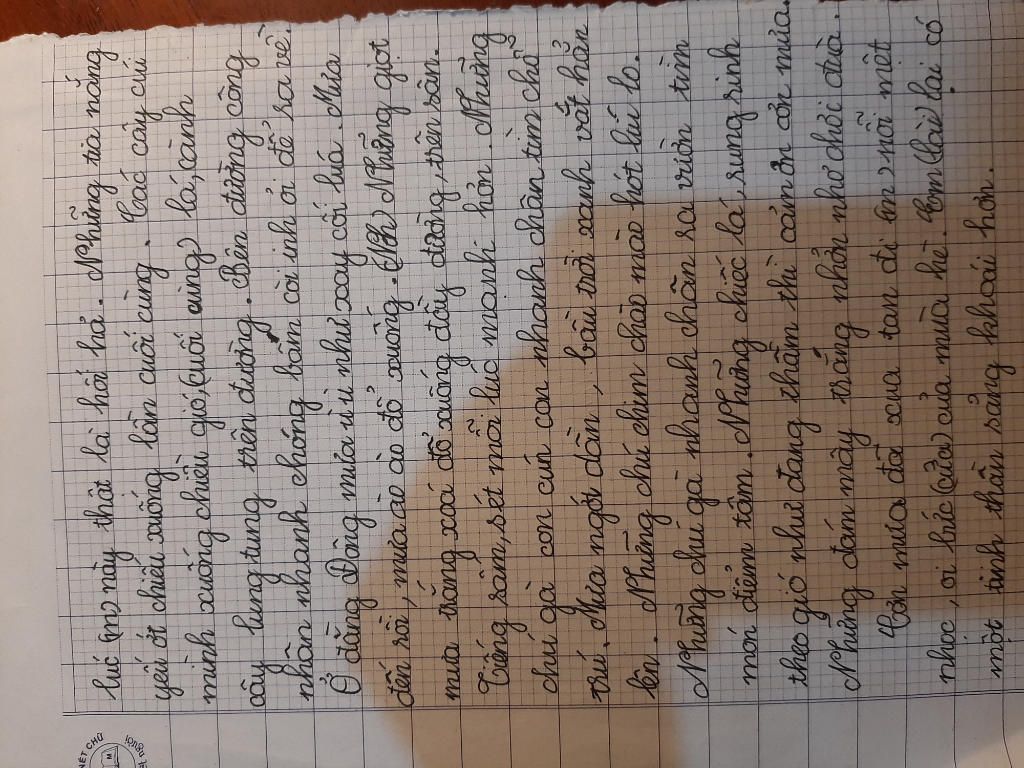 lúc (m) này thật là hối hả. Những tia nắng
yếu ớt chiếu xuống lần cuối cùng. Các cây cúi
mình xuống chiều gió, (cuối cùng) lá, cành
cây lung tung trên đường. Bên đường công
nhân nhanh chóng bấm còi inh ỏi để ra về.
Ở đằng Đông mưa ù ù như xay cối lúa. Mưa
đến rồi, mưa ào ào đổ xuống. (Nh) Những giọt
mưa trắng xoá đổ xuống đầy đường, trên sân.
Tiếng sấm, sét mỗi lúc mạnh hơn. Những
chú gà con cuả con nhanh chân tìm chỗ
trú. Mưa ngớt dần, bầu trời xanh vắt hẳn
lên. Những chú chim chào mào hót líu lo.
Những chú gà nhanh chân ra vườn tìm
món điểm tâm. Những chiếc lá rung rinh
theo gió như đang thầm thì cảm ơn cơn mưa.
Những đám mây trắng nhởn nhơ chơi đùa.
Cơn mưa đã xua tan đi (m) nỗi mệt
nhọc, oi bức (cửa) của mùa hè. Em (lài) lại có
một tinh thần sảng khoái hơn.
NÉT CHỮ